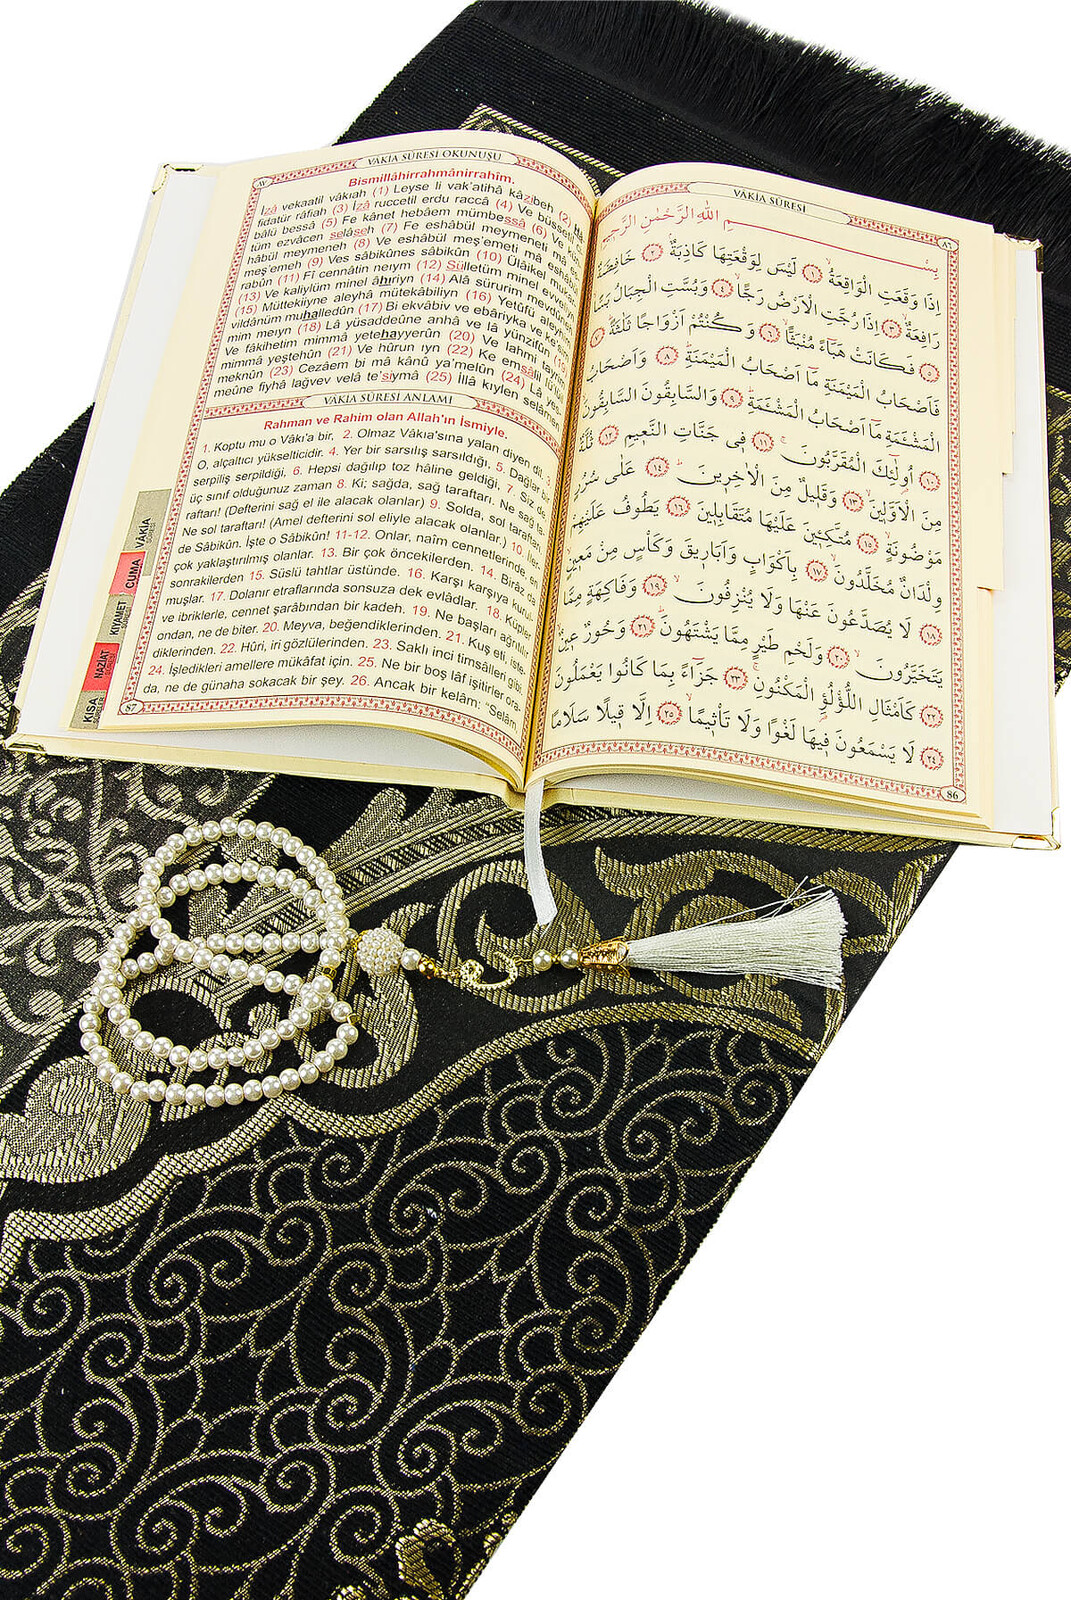 VÂKİA SÛRESİ OKUNUŞU
Bismillâhirrahmânirrahîm.
İzâ vekaatil vâkıah (1) Leyse li vak'atihâ kâzibeh (2) Hâ
fidatür râfiah (3) İzâ ruccetil erdu raccâ (4) Ve büssetil
bâlü bessâ (5) Fe kânet hebâem mümbessâ (6) Ve
tüm ezvâcen selâseh (7) Fe eshâbül meymeneti mâ
hâbül meymeneh (8) Ve eshâbül meş'emeti mâ
meş'emeh (9) Ves sâbikûnes sâbikûn (10) Ülâikel
rabûn (11) Fî cennâtin neıym (12) Sülletüm minel evvelîn
(13) Ve kaliylüm minel âhıriyn (14) Alâ sürurim mevdûneh
(15) Müttekiiyne aleyhâ mütekâbiliyn (16) Yetûfü aleyhim
vildânüm muhalledûn (17) Bi ekvâbiv ve ebâriyka ve ke'sim
mim meıyn (18) Lâ yüsaddeûne anhâ ve lâ yünzifûn
Ve fâkihetim mimmâ yetehayyerûn (20) Ve lahmi tayrim
mimmâ yeştehûn (21) Ve hûrun ıyn (22) Ke emsâlil
meknûn (23) Cezâem bi mâ kânû ya'melûn (24) Lâ yes-
meûne fiyhâ lağvev velâ te'siymâ (25) İllâ kıylen selâmen
VAKİA SÛRESİ ANLAMI
Rahman ve Rahim olan Allah'ın İsmiyle.
1. Koptu mu o Vâkı'a bir, 2. Olmaz Vâkıa'sına yalan diyen dil.
O, alçaltıcı yükselticidir. 4. Yer bir sarsılış sarsıldığı, 5. Dağlar bir
serpiliş serpildiği, 6. Hepsi dağılıp toz hâline geldiği, 7. Siz de
üç sınıf olduğunuz zaman 8. Ki; sağda, sağ taraftarı. Ne sağ ta-
raftarı! (Defterini sağ el ile alacak olanlar) 9. Solda, sol taraftarı.
Ne sol taraftarı! (Amel defterini sol eliyle alacak olanlar.) 10. İler-
de Sâbikûn. İşte o Sâbikûn! 11-12. Onlar, naîm cennetlerinde, en
çok yaklaştırılmış olanlar. 13. Bir çok öncekilerden. 14. Biraz da
sonrakilerden 15. Süslü tahtlar üstünde. 16. Karşı karşıya kurul-
muşlar. 17. Dolanır etraflarında sonsuza dek evladlar. 18. Küpler
ve ibriklerle, cennet şarâbından bir kadeh. 19. Ne başları ağrıtılır
ondan, ne de biter. 20. Meyva, beğendiklerinden. 21. Kuş eti, iste-
diklerinden. 22. Hûri, iri gözlülerinden. 23. Saklı inci timsâlleri gibi.
24. İşledikleri amellere mükâfat için. 25. Ne bir boş lâf işitirler ora-
da, ne de günaha sokacak bir şey. 26. Ancak bir kelâm: "Selâm
87
VÂKİA
CUMA
KIYAMET
NAZİAT
KISA
VÂKİA SÛRESİ
٨٦
بِسْــــمِ اللهِ الرَّحْمٰنِ الرَّحِيمِ
اِذَا وَقَعَتِ الْوَاقِعَةُ ﴿١﴾ لَيْسَ لِوَقْعَتِهَا كَاذِبَةٌ ﴿٢﴾ خَافِضَةٌ
رَافِعَةٌ ﴿٣﴾ اِذَا رُجَّتِ الْاَرْضُ رَجًّا ﴿٤﴾ وَبُسَّتِ الْجِبَالُ بَسًّا
﴿٥﴾ فَكَانَتْ هَبَٓاءً مُنْبَثًّا ﴿٦﴾ وَكُنْتُمْ اَزْوَاجًا ثَلٰثَةً ﴿٧﴾
فَاَصْحَابُ الْمَيْمَنَةِ مَٓا اَصْحَابُ الْمَيْمَنَةِ ﴿٨﴾ وَاَصْحَابُ
الْمَشْـَٔمَةِ مَٓا اَصْحَابُ الْمَشْـَٔمَةِ ﴿٩﴾ وَالسَّابِقُونَ السَّابِقُونَ
﴿١٠﴾ اُولٰٓئِكَ الْمُقَرَّبُونَ ﴿١١﴾ فِى جَنَّاتِ النَّعِيمِ ﴿١٢﴾ ثُلَّةٌ
مِنَ الْاَوَّلِينَ ﴿١٣﴾ وَقَلِيلٌ مِنَ الْاٰخِرِينَ ﴿١٤﴾ عَلٰى سُرُرٍ
مَوْضُونَةٍ ﴿١٥﴾ مُتَّكِـِٔينَ عَلَيْهَا مُتَقَابِلِينَ ﴿١٦﴾ يَطُوفُ عَلَيْهِمْ
وِلْدَانٌ مُخَلَّدُونَ ﴿١٧﴾ بِاَكْوَابٍ وَاَبَارِيقَ وَكَاْسٍ مِنْ مَعِينٍ
﴿١٨﴾ لَا يُصَدَّعُونَ عَنْهَا وَلَا يُنْزِفُونَ ﴿١٩﴾ وَفَاكِهَةٍ مِمَّا
يَتَخَيَّرُونَ ﴿٢٠﴾ وَلَحْمِ طَيْرٍ مِمَّا يَشْتَهُونَ ﴿٢١﴾ وَحُورٌ عِينٌ
﴿٢٢﴾ كَاَمْثَالِ اللُّؤْلُؤِ الْمَكْنُونِ ﴿٢٣﴾ جَزَٓاءً بِمَا كَانُوا يَعْمَلُونَ
﴿٢٤﴾ لَا يَسْمَعُونَ فِيهَا لَغْوًا وَلَا تَاْثِيمًا ﴿٢٥﴾ اِلَّا قِيلًا سَلَامًا
86